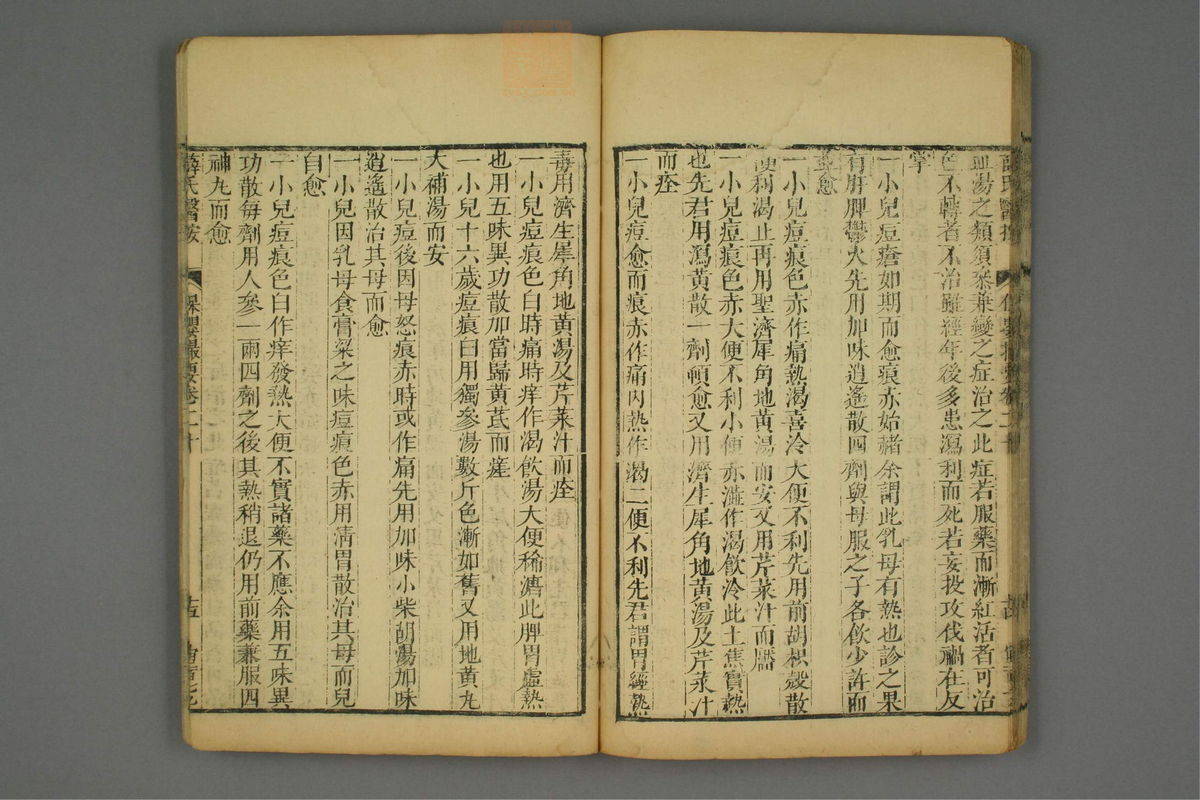 血湯之類須察兼變之症治之此症若服藥而漸紅活者可治
色不轉者不治雖經年後多患瀉利而死若妄投攻伐禍在反
掌
一小兒痘瘡如期而愈痕赤始赭余謂此乳母有熱也診之果
有肝脾鬱火先用加味逍遙散四劑與母服之子各飲少許而
並愈
一小兒痘痕色赤作痛熱渴喜冷大便不利先用前胡枳殼散
便利渴止再用聖濟犀角地黃湯而安又用芹菜汁而靨
一小兒痘痕色赤大便不利小便赤澁作渴飲冷此上焦實熱
也先君用瀉黃散一劑頓愈又用濟生犀角地黃湯及芹菜汁
而痊
一小兒痘愈而痕赤作痛內熱作渴二便不利先君謂胃經熱
毒用濟生犀角地黃湯及芹菜汁而痊
一小兒痘痕色白時痛時痒作渴飲湯大便稀溏此脾胃虛熱
也用五味異功散加當歸黃芪而瘥
一小兒十六歲痘痕白用獨參湯數斤色漸如舊又用地黃丸
大補湯而安
一小兒痘後因母怒痕赤時或作痛先用加味小柴胡湯加味
逍遙散治其母而愈
一小兒因乳母食膏粱之味痘痕色赤用清胃散治其母而兒
自愈
一小兒痘痕色白作痒發熱大便不實諸藥不應余用五味異
功散每劑用人參一兩四劑之後其熱稍退仍用前藥兼服四
神丸而愈
薛氏醫按 保嬰撮要卷二十 十五